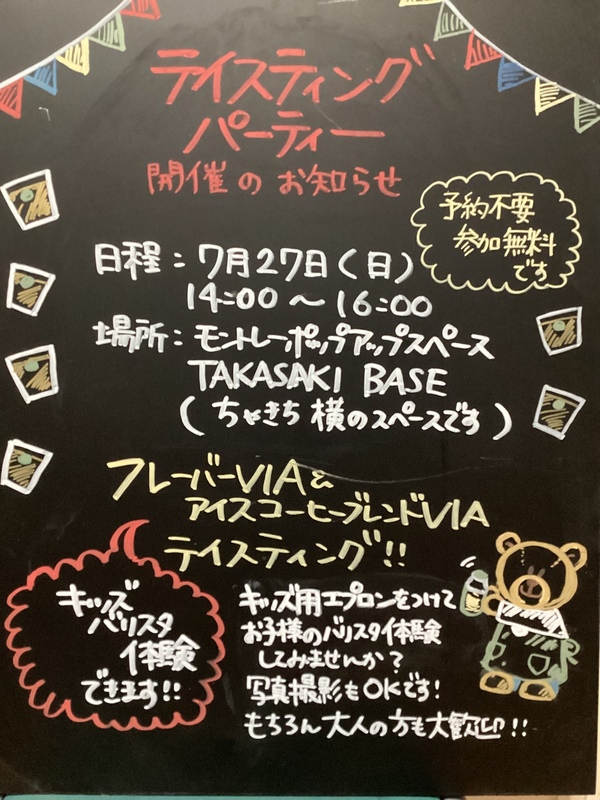 テイスティング
パーティー
開催のお知らせ
予約不要
参加無料
です
日程：7月27日(日)
14:00～16:00
場所：モントレーポップアップスペース
TAKASAKI BASE
(ちゃきち横のスペースです)
フレーバーVIA&
アイスコーヒーブレンドVIA
テイスティング!!
キッズ
バリスタ
体験
できます!!
キッズ用エプロンをつけて
お子様のバリスタ体験
してみませんか?
写真撮影もOKです!
もちろん大人の方も大歓迎!!